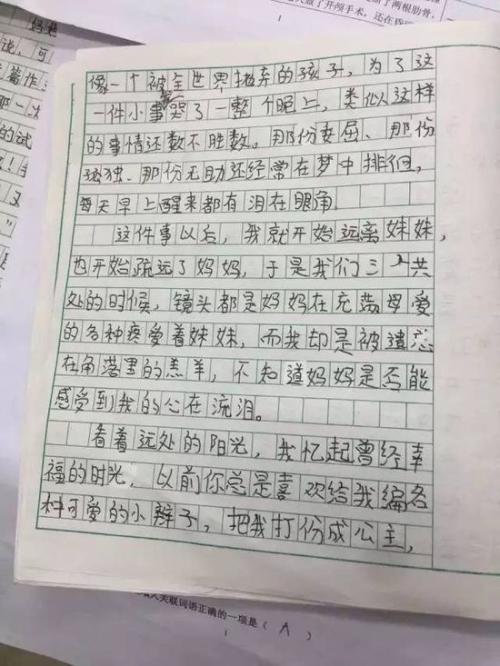 像一个被全世界抛弃的孩子，为了这
一件小事哭了一整个晚上，类似这样
的事情还数不胜数。那份委屈、那份
孤独、那份无助还经常在梦中徘徊，
每天早上醒来都有泪在眼角。
这件事以后，我就开始远离妹妹，
也开始疏远了妈妈，于是我们三人共
处的时候，镜头都是妈妈在充满母爱
的各种疼爱着妹妹，而我却是被遗忘
在角落里的羔羊，不知道妈妈是否能
感受到我的心在流泪。
看着远处的阳光，我忆起曾经幸
福的时光，以前你总是喜欢给我编各
种可爱的小辫子，把我打份成公主，
词语正确的一项是（ A ）